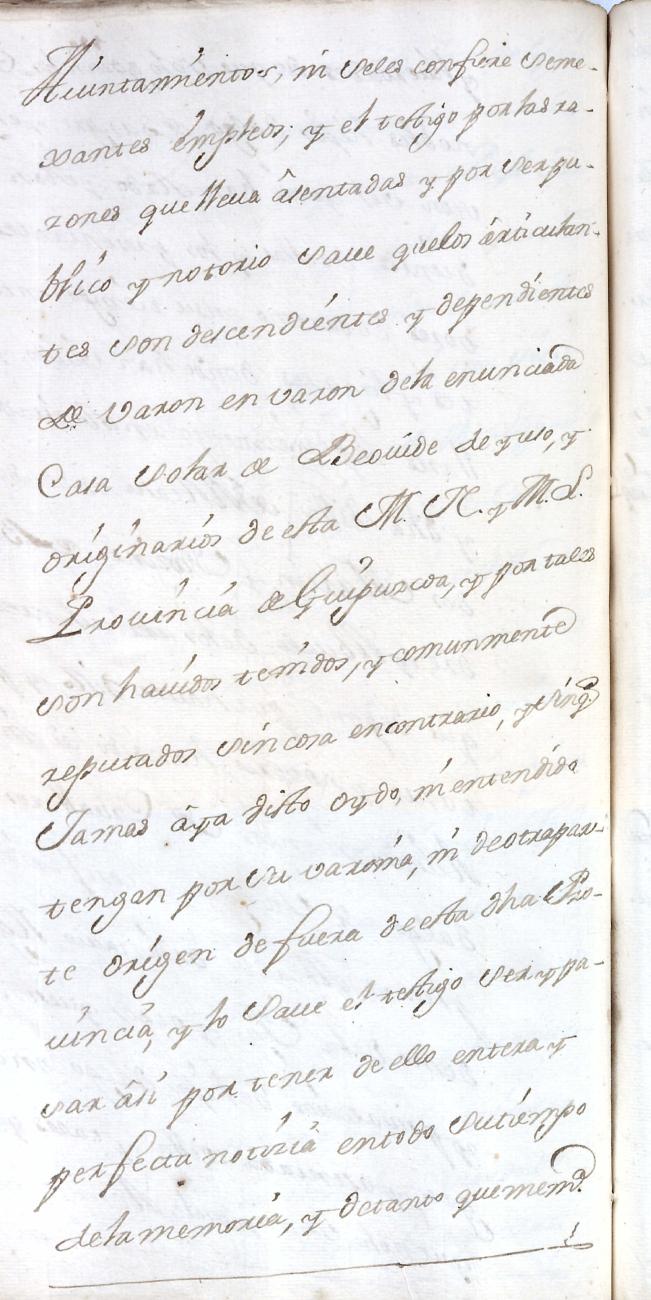 Aiuntamientos, ni seles confiere seme-
xantes empleos; y el testigo por las ra-
zones que lleva âsentadas y por ser pu-
blico y notorio save quelos ârticulan-
tes son descendientes y dependientes
de varon en varon dela enunciada
Casa solar de Beovide de yuso, y
originarios de esta M. N. y M. L.
Provincia de Guipuzcoa, y por tales
son havidos tenidos, y comunmente
reputados sin cosa encontrario, y sinq.
Jamas âya visto oydo, ni entendido
tengan por su varonia, ni de otra par-
te origen de fuera de esta dha Pro-
vincia, y lo save el testigo ser y pa-
sar âsi por tener de ello entera y
perfecta notizia entodo sutiempo
dela memoria, y detanto quemem.a